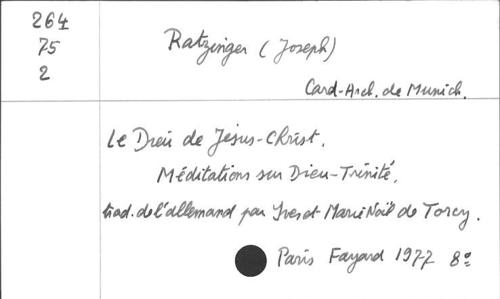 264
75
2
Ratzinger (Joseph)
Card-Arch. de Munich.
Le Dieu de Jésus-Christ.
Méditations sur Dieu-Trinité,
trad. de l'allemand par Yves et Marie Noël de Torcy.
Paris Fayard 1977 8º